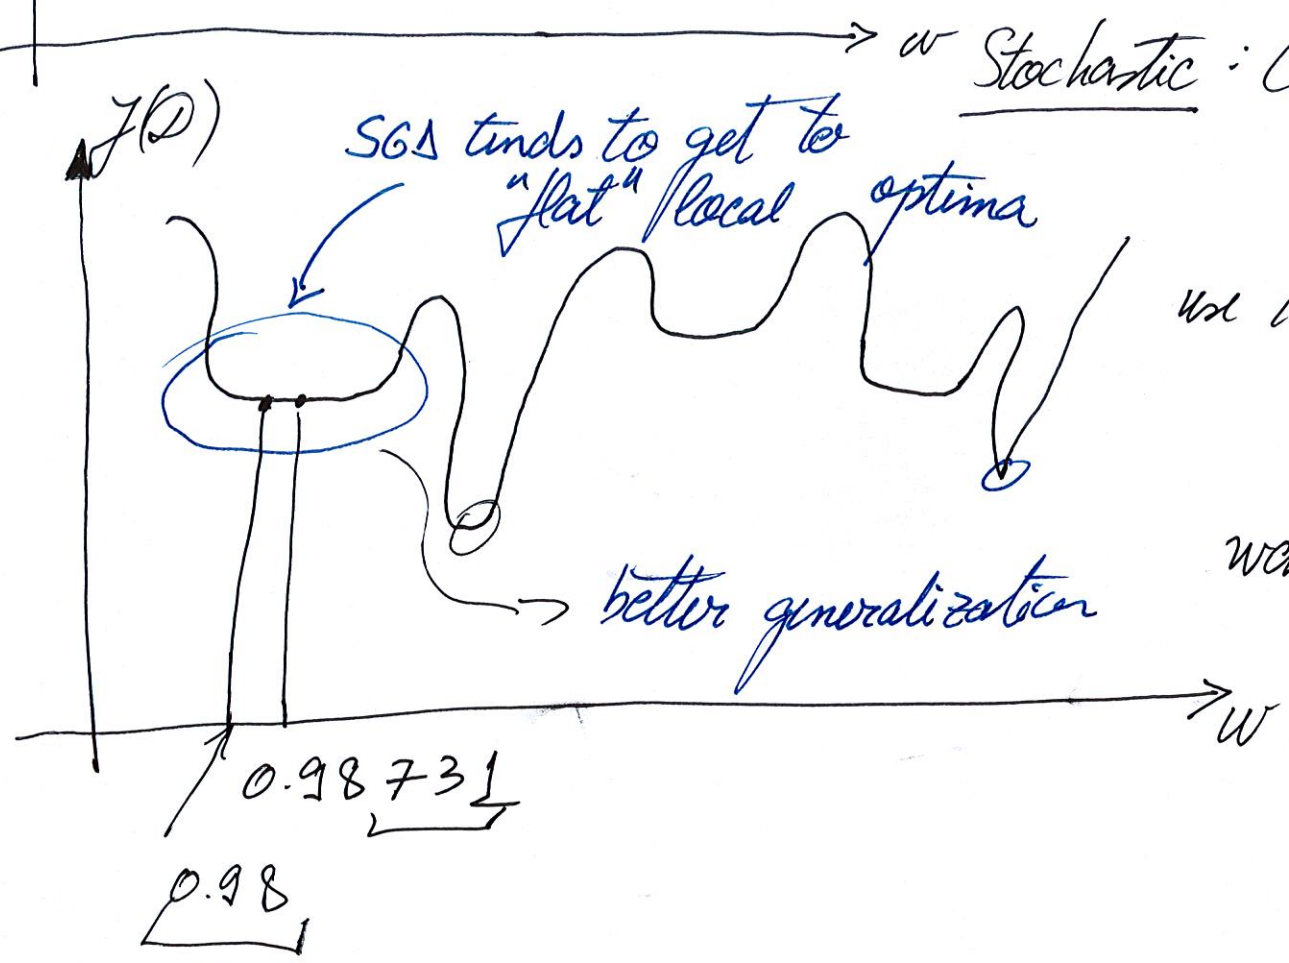 w
Stochastic : (
J(D)
SGD tends to get to
"flat" local optima
use
better generalization
w
0.98731
0.98